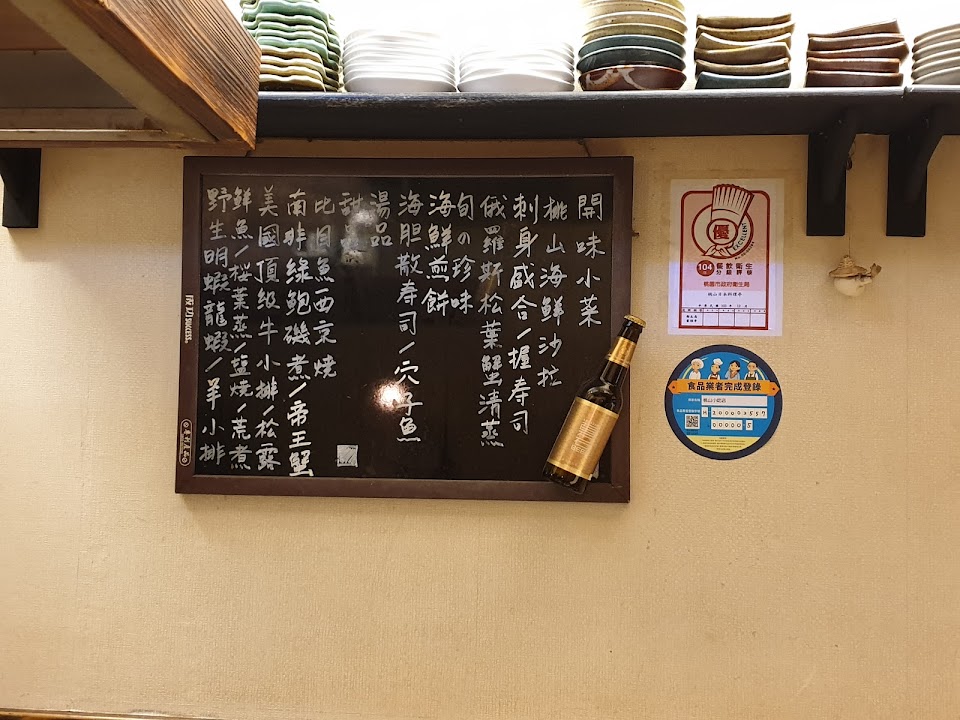 開味小菜
桃山海鮮沙拉
刺身盛合/握壽司
俄羅斯松葉蟹清蒸
旬の珍味
海鮮煎餅
海胆散寿司/穴子魚
湯品
甜品
比目魚西京燒
南非綠鮑磯煮/帝王蟹
美國頂級牛小排/松露
鮮魚/桜葉蒸/塩燒/荒煮
野生明蝦龍蝦/羊小排
SUCCESS
優
EXCELLENT
104
餐飲衛生
分級評核
桃園市政府衛生局
桃山日本料理亭
食品業者完成登錄
桃山小吃店